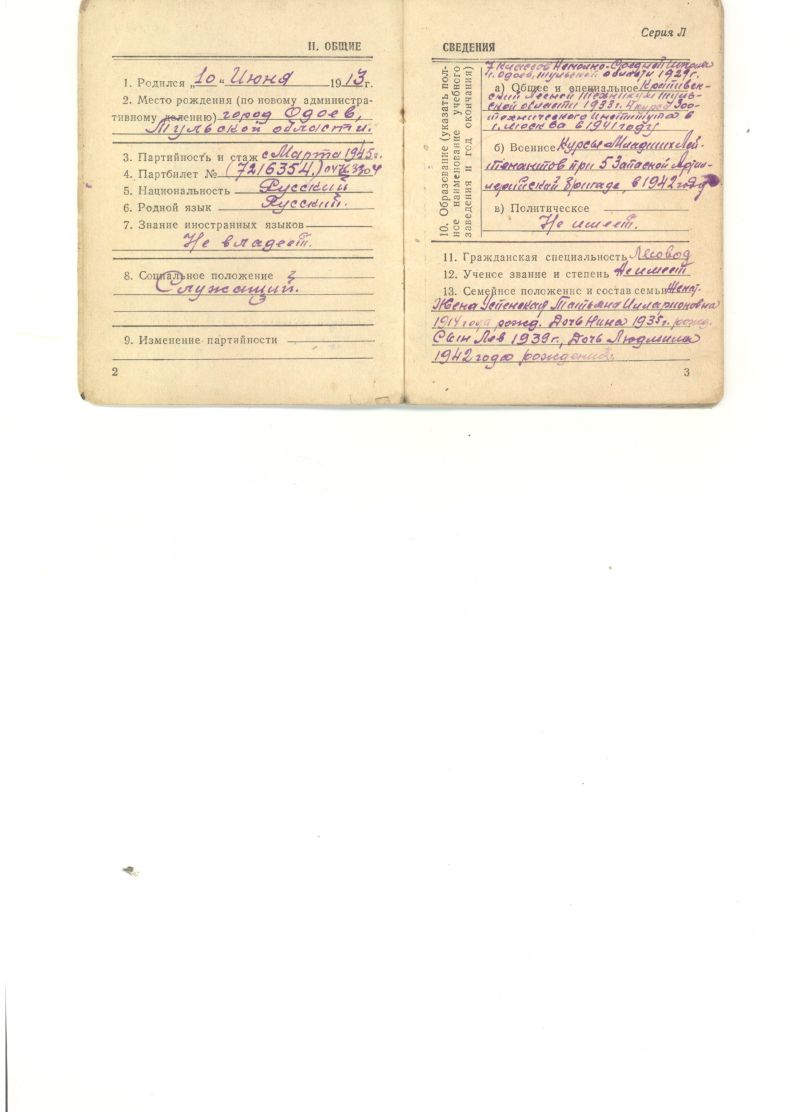 II. ОБЩИЕ
1. Родился „10" Июня 1913 г.
2. Место рождения (по новому администра-
тивному делению) город Одоев,
Тульской области.
3. Партийность и стаж с Марта 1945 г.
4. Партбилет № (7216354)
5. Национальность Русский
6. Родной язык Русский.
7. Знание иностранных языков
Не владеет.
8. Социальное положение
Служащий.
9. Изменение партийности
2
Серия Л
СВЕДЕНИЯ
10. Образование (указать пол-
ное наименование учебного
заведения и год окончания)
7 классов Неполно-Средней Школы
г. Одоев, Тульской области 1929 г.
а) Общее и специальное
ский Лесной Техникум Туль-
ской области 1933 г. 4 курса Зоо-
технического Института в
г. Москва в 1941 году
б) Военное Курсы Младших Лей-
тенантов при 5 Запасной Артил-
лерийской бригаде, в 1942 году
в) Политическое
Не имеет.
11. Гражданская специальность Лесовод
12. Ученое звание и степень Не имеет
13. Семейное положение и состав семьи Женат.
Жена Успенская Татьяна Илларионовна
1914 года рожд. Дочь Нина 1935 г. рожд.
Сын Лев 1939 г., Дочь Людмила
1942 года рождения.
3